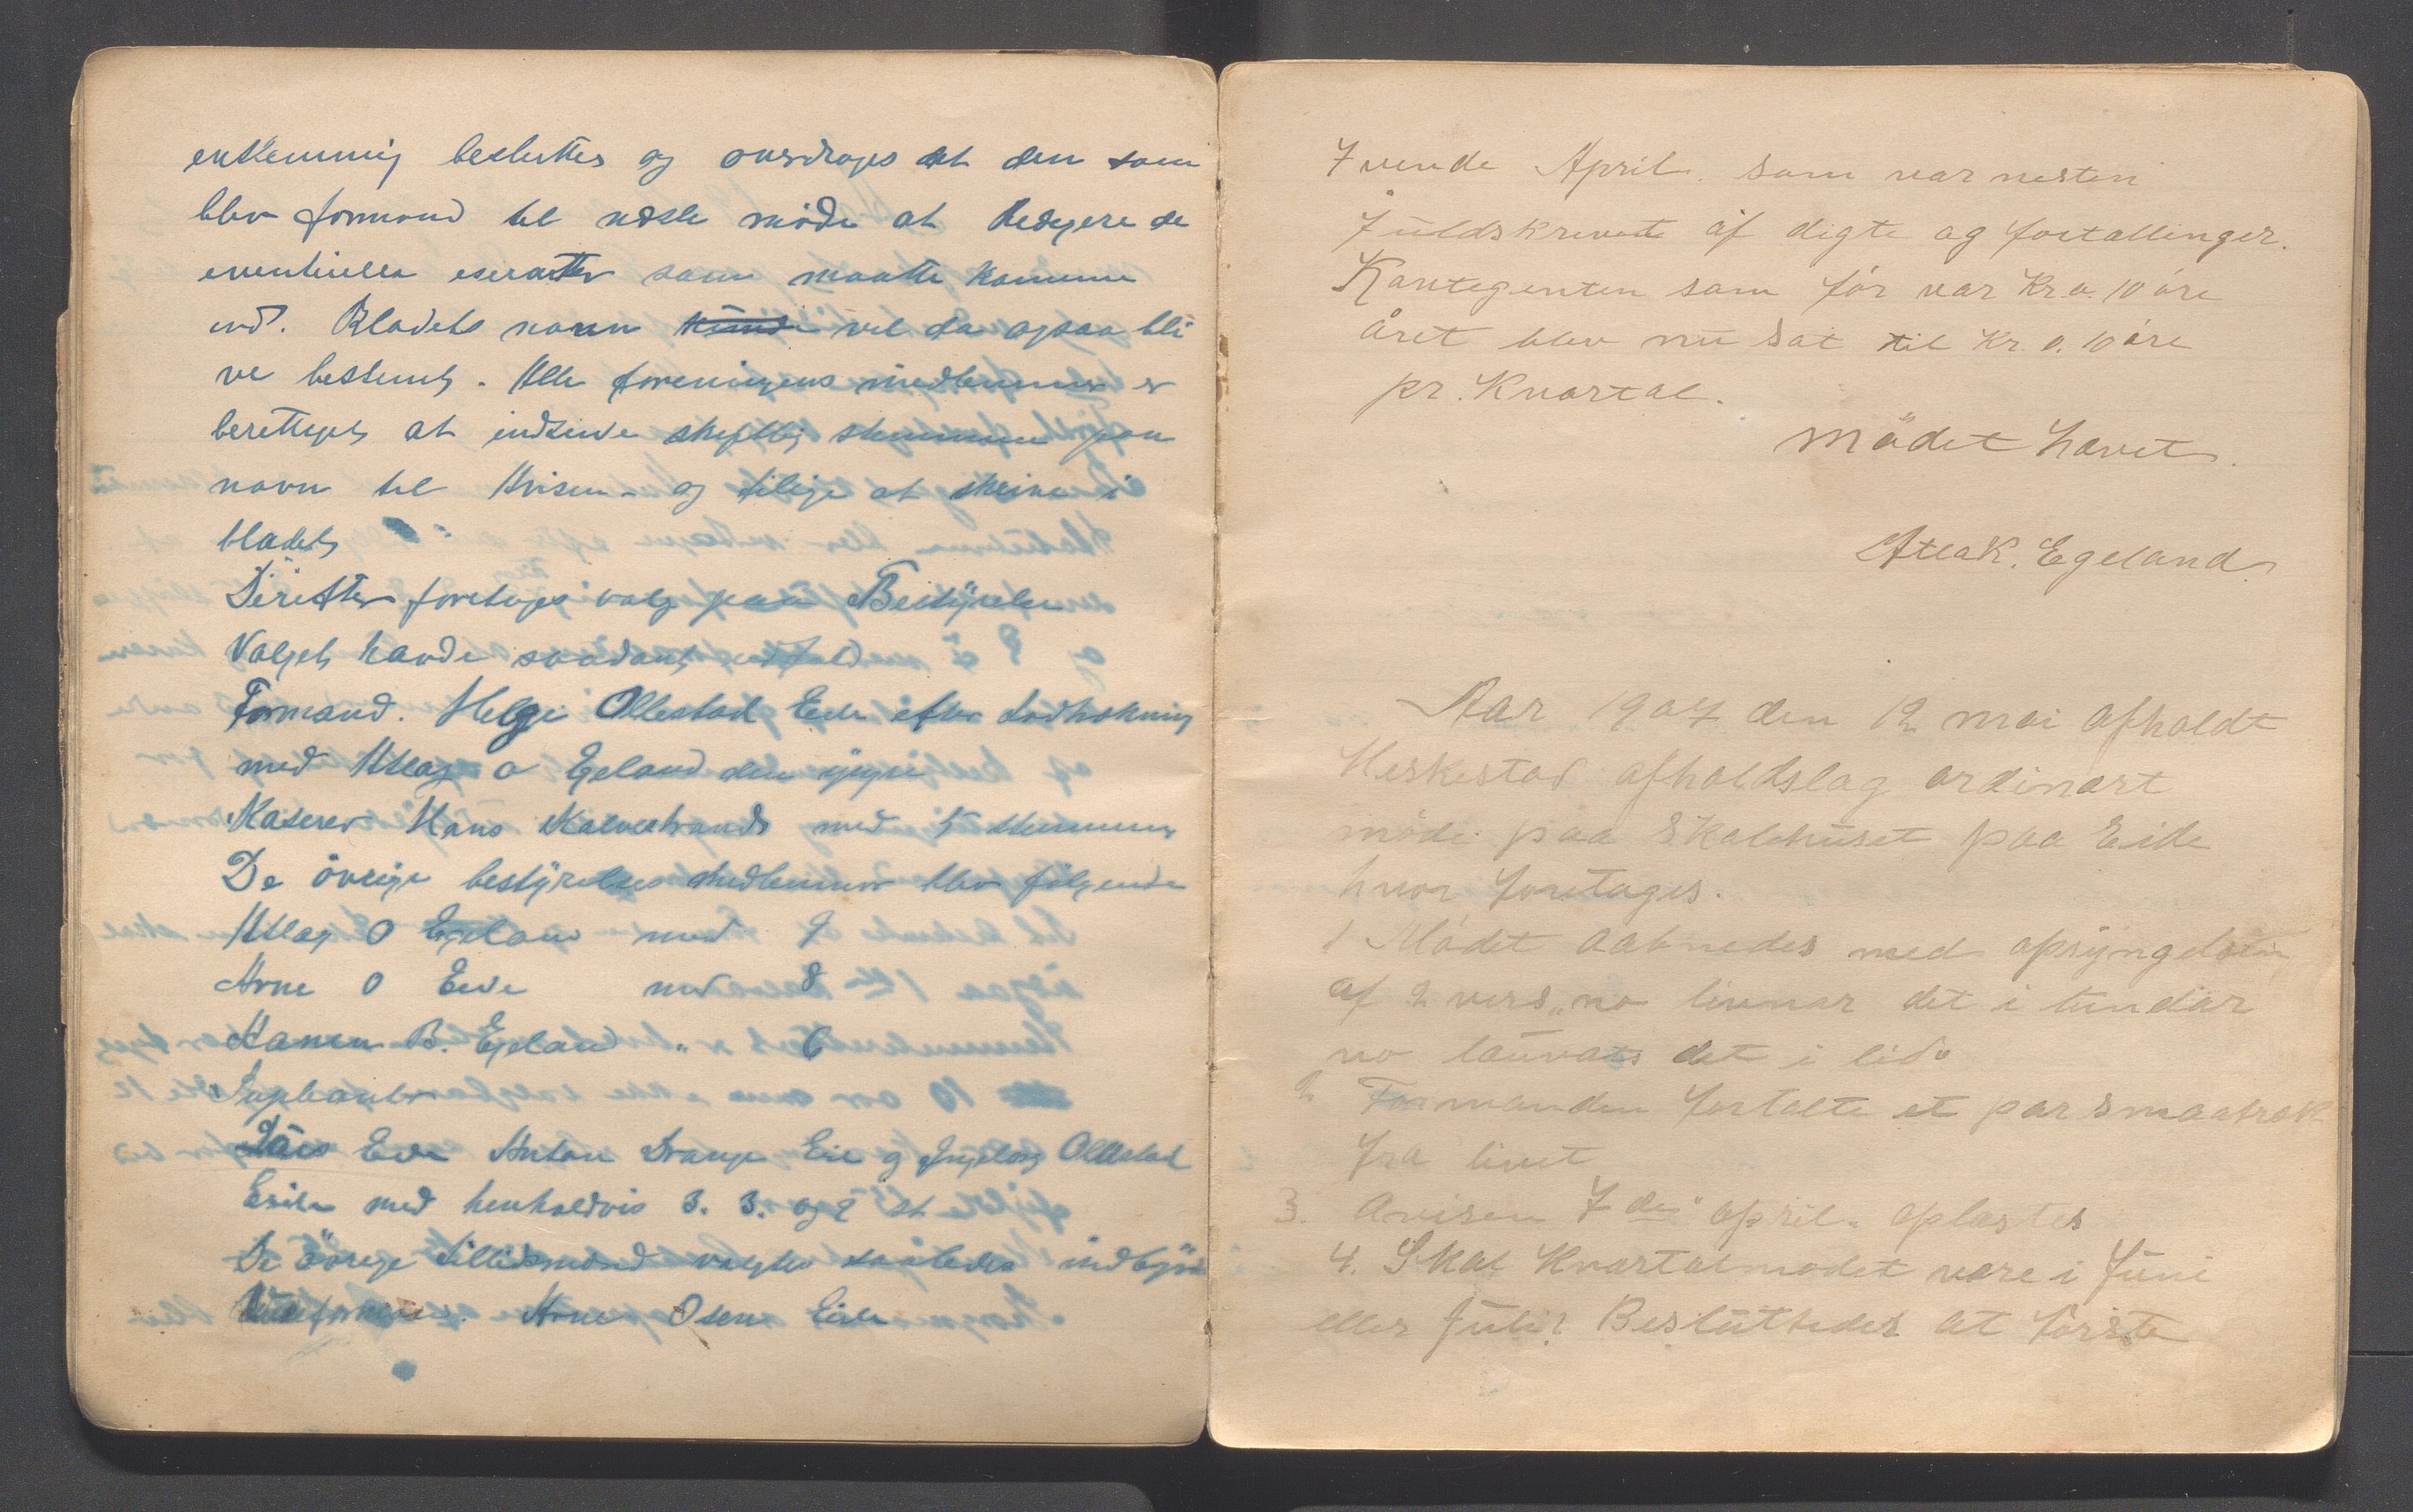 enstemmig besluttes og overdroges at den som
blev formand til næste möde at Redigere de
eventuelle som maatte komme
ind. Bladets navn kunde vil da ogsaa bli
ve bestemt. Alle foreningens medlemmer er
berettiget at indsende skriftlig stemmer paa
navn til Avisen og tilige at skrive i
bladet
Derefter foretoges valg paa Bestÿrelse
Valget havde saadant udfald
Formand. Helge Ollestad Eide efter Lodtrækning
med Atlag O Egeland den yngre
Kaserer Hans med 5 stemmer
De övrige bestÿrelses medlemmer blev fölgende
Atlag O Egeland med 9
Arne O Eide med 8
Hanna B. Egeland " 6
Supleanter
Lars Eide Anton Drange Eie og Ingeborg Ollestad
Eide med henholdvis 3. 3. og 2 st
De övrige tillidsmænd valgtes saaledes indbyrdes
Viseformand. Arne Osen Eide
7 vende April. som var nesten
fuldskrevet af digte og fortællinger.
Kontegenten som för var Kr. 0. 10 öre
året blev nu sat til Kr. 0. 10 öre
pr. Kvartal.
Mödet hævet.
Atlak. Egeland.
Aar 1907 den 12 mai afholdt
Heskestad afholdslag ordinært
möde paa Skolehuset paa Eide
hvor foretages.
1 Mödet aabnedes med opsÿngelsen
af 2 vers „no livnar det i lundar
no lauvast det i lid"
2 Formanden fortalte et par smaatræk
fra livet
3. Avisen 7de april. oplæstes
4. Skal Kvartalmödet være i Juni
eller Juli? Besluttedes at förste